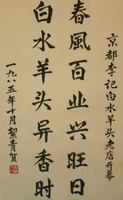 京都李记白水羊头老店开幕
春風百业兴旺日
白水羊头异香时
一九八五年十月 賀